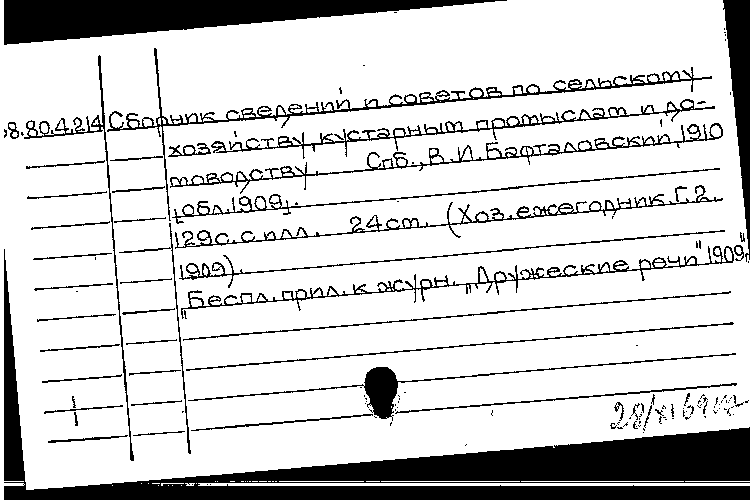 38.80.4.214 Сборник сведений и советов по сельскому
хозяйству, кустарным промыслам и до-
моводству. Спб., В.И. Бафталовский, 1910
[обл. 1909].
129с. с илл. 24см. (Хоз. ежегодник. Г. 2.
1909).
"Беспл. прил. к журн. „Дружеские речи" 1909".
28/XI 69